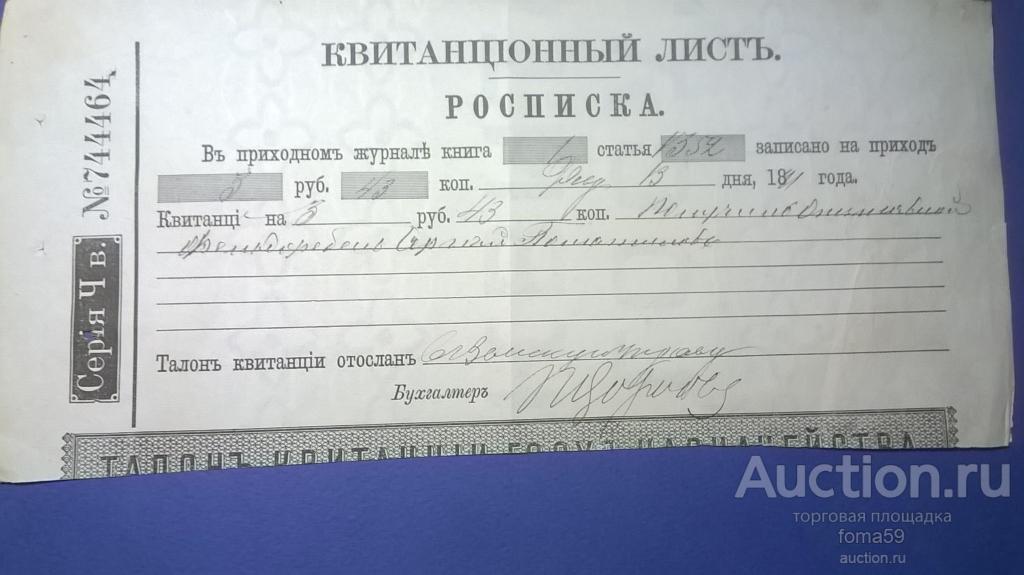 КВИТАНЦІОННЫЙ ЛИСТЪ.
РОСПИСКА.
Въ приходномъ журналѣ книга статья 1552 записано на приходъ
5 руб. 43 коп. 13 дня, 18 года.
Квитанці на 5 руб. 43 коп. Получилъ
Сергѣй
Талонъ квитанціи отосланъ
Бухгалтеръ
№744464
Серія Ч в.
ТАЛОНЪ КВИТАНЦІИ КАЗНАЧЕЙСТВА
Auction.ru
торговая площадка
foma59
auction.ru